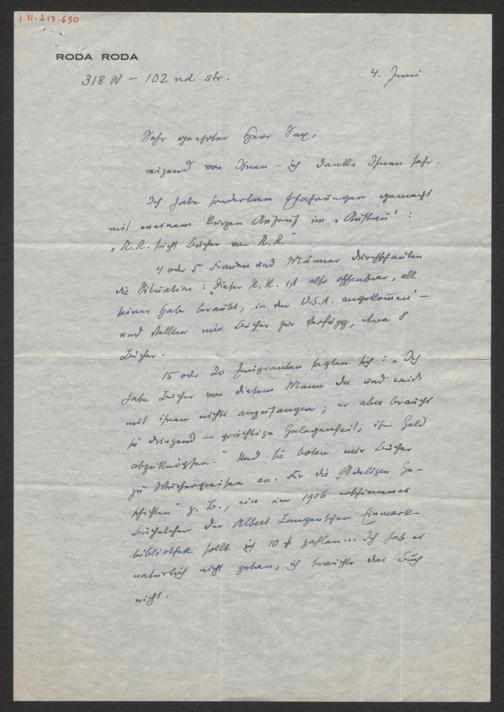 I.N. 213.630
RODA RODA
318 W – 102 nd str.
4. Juni
Sehr geehrter Herr Sax,
reizend von Ihnen – ich danke Ihnen sehr.
Ich habe sonderbare Erfahrungen gemacht
mit meinem kurzen Anruf im „Aufbau“:
„R.R. sucht Bücher von R.R.“
4 oder 5 Frauen und Männer durchschauten
die Situation: „Dieser R.R. ist also offenbar, all
seiner Habe beraubt, in den U.S.A. angekommen“ –
und stellten mir Bücher zur Verfügg, etwa 8
Bücher.
15 oder 20 Emigranten sagten sich: „Ich
habe Bücher von diesem Mann da und weiß
mit ihnen nichts anzufangen; er aber braucht
sie dringend – prächtige Gelegenheit, ihm Geld
abzuknöpfen.“ Und sie boten mir Bücher
zu Wucherpreisen an. Für die „Adeligen Ge-
schichten“ z. B., ein um 1906 erschienenes
Büchelchen der Albert Langenschen Einmark-
bibliothek sollt ich 10 $ zahlen... Ich hab es
natürlich nicht getan, ich brauchte das Buch
nicht.